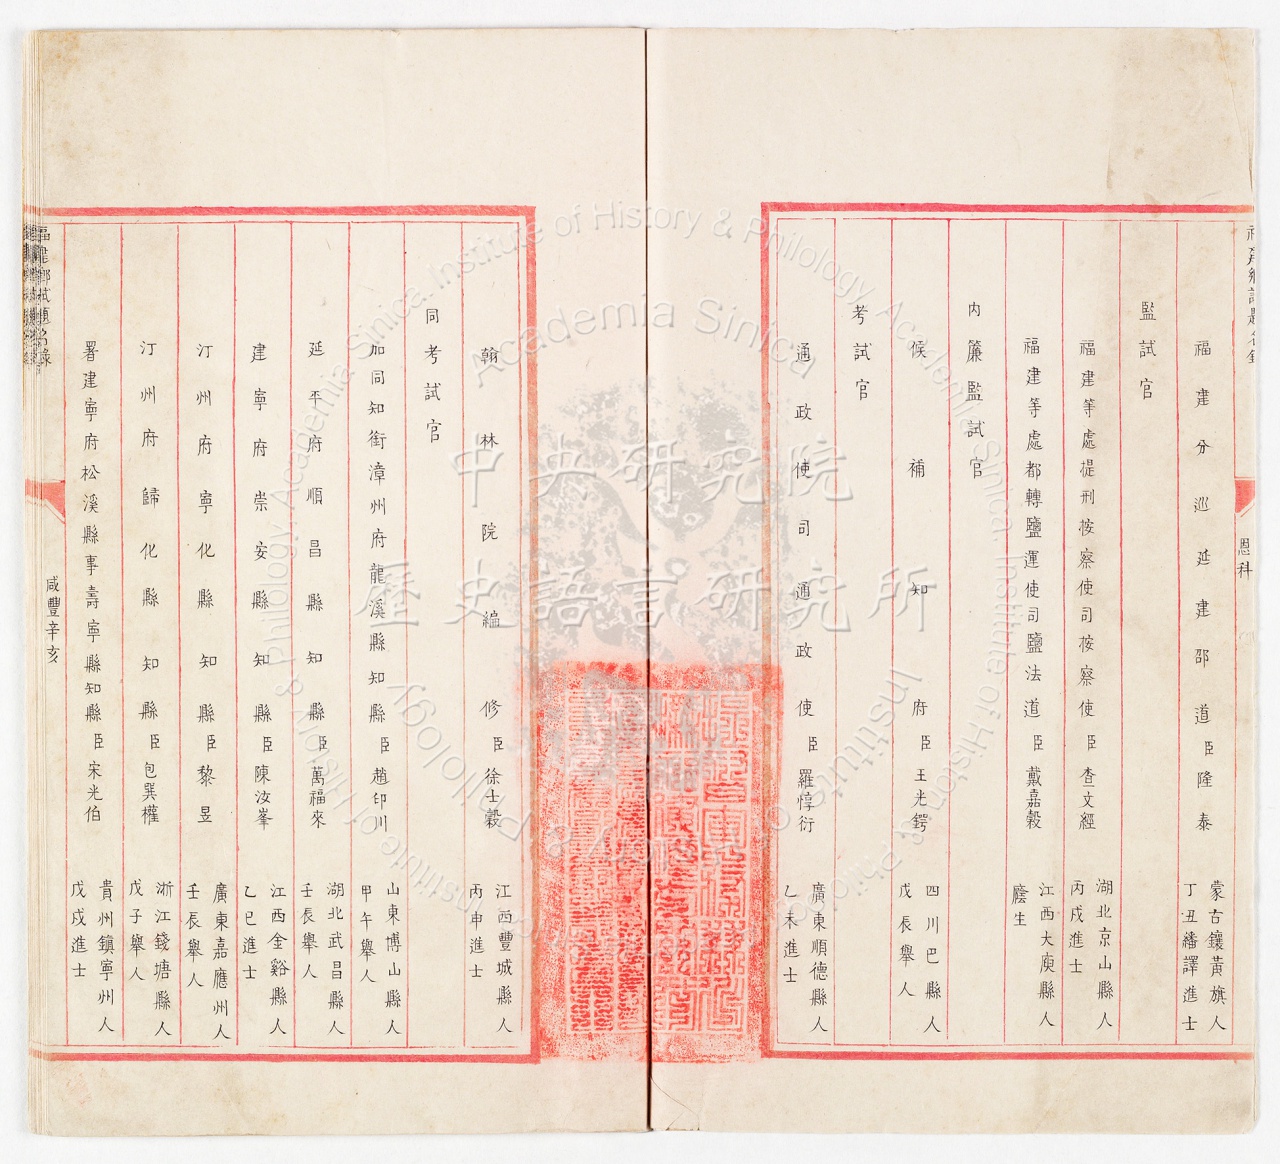 福建鄉試題名錄
恩科
福建分巡延建邵道臣隆泰
蒙古鑲黃旗人
丁丑繙譯進士
監試官
福建等處提刑按察使司按察使臣查文經
湖北京山縣人
丙戌進士
福建等處都轉鹽運使司鹽法道臣戴嘉穀
江西大庾縣人
廕生
內簾監試官
候補知府臣王光鍔
四川巴縣人
戊辰舉人
考試官
通政使司通政使臣羅惇衍
廣東順德縣人
乙未進士
翰林院編修臣徐士穀
江西豐城縣人
丙申進士
同考試官
加同知銜漳州府龍溪縣知縣臣趙印川
山東博山縣人
甲午舉人
延平府順昌縣知縣臣萬福來
湖北武昌縣人
壬辰舉人
建寧府崇安縣知縣臣陳汝峯
江西金谿縣人
乙巳進士
汀州府寧化縣知縣臣黎昱
廣東嘉應州人
壬辰舉人
汀州府歸化縣知縣臣包巽權
浙江錢塘縣人
戊子舉人
署建寧府松溪縣事壽寧縣知縣臣宋光伯
貴州鎮寧州人
戊戌進士
福建鄉試題名錄
咸豐辛亥
中央研究院
歷史語言研究所
Academia Sinica
Institute of History & Philology, Academia Sinica